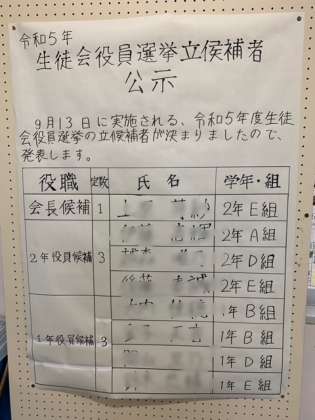 令和5年
生徒会役員選挙立候補者
公示
9月13日に実施される、令和5年度生徒
会役員選挙の立候補者が決まりましたので、
発表します。
役職 定数 氏名 学年・組
会長候補 1 2年E組
2年役員候補 3 2年A組
2年D組
2年E組
1年役員候補 3 1年B組
1年B組
1年D組
1年E組